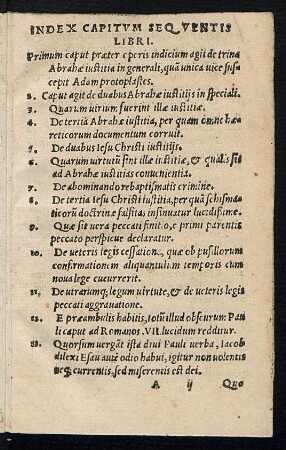 INDEX CAPITVM SEQVENTIS
LIBRI.
Primum caput præter operis indicium agit de trina
Abrahæ iustitia in generali, quâ unica vice sus
cepit Adam protoplastes.
2. Caput agit de duabus Abrahæ iustitijs in speciali.
3. Quarum utrium fuerint illæ iustitiæ.
4. De tertiâ Abrahæ iustitia, per quam omne hæ
reticorum documentum corruit.
5. De duabus Iesu Christi iustitijs.
6. Quarum virtutũ sint illæ iustitiæ, & qualis sit
ad Abrahæ iustitias conuenientia.
7. De abominando rebaptismatis crimine.
8. De tertia Iesu Christi iustitia, per quã schisma
ticorũ doctrinæ falsitas insinuatur lucidissime.
9. Quæ sit vera peccati finitio, e primi parentis
peccato perspicue declaratur.
10. De veteris legis cessatione, quæ ob pusillorum
confirmationem aliquantulum temporis cum
noua lege cucurrerit.
11. De utrarumq; legum virtute, & de veteris legis
peccati aggrauatione.
12. E præambulis habitis, totũ illud obscurum Pau
li caput ad Romanos. VII. lucidum redditur.
13. Quorsum vergãt ista diui Pauli verba, Iacob
dilexi Esau autẽ odio habui, igitur non volentis
neq; currentis, sed miserentis est dei.
A ij Quo